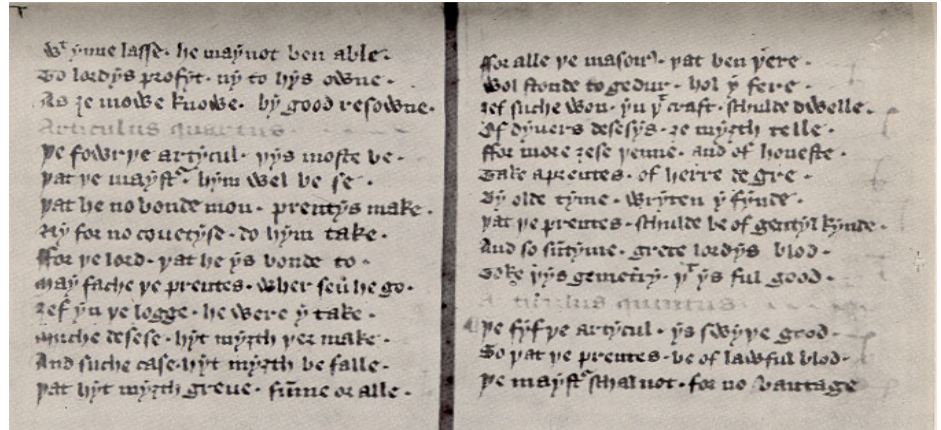 Wᵗ ynne lasse · he may not ben able ·
To lordys profyt · ny to hys owne ·
As ȝe mowe knowe · by good resowne ·
Articulus quartus ·
Þe fowrþe artycul · þys moste be ·
Þat þe mayst' · hym wel be se ·
Þat he no bonde mon · prentys make ·
Ny for no couetyse · do hym take ·
Ffor þe lord · þat he ys bonde to ·
May fache þe prentes · wher seu̅ he go ·
Ȝef yn þe logge · he were y take ·
Muche desese · hyt myȝth þer make ·
And suche case · hyt myȝth be falle ·
Þat hyt myȝth greue · su̅me or alle ·
Ffor alle þe masonꝰ · þat ben þere ·
Wol stonde togedur · hol y fere ·
Ȝef suche won · yn þᵗ craft · schulde dwelle ·
Of dyuers desesys · ȝe myȝth telle ·
Ffor more ȝese þenne · and of honeste ·
Take a prentes · of herre degre ·
By olde tyme · wryten y fynde ·
Þat þe prentes · schulde be of gentyl kynde ·
And so su̅tyme · grete lordys blod ·
Toke þys gemetry · þᵗ ys ful good ·
Articulus quintus ·
Þe fyfþe artycul · ys swyþe good ·
So þat þe prentes · be of lawful blod ·
Þe mayst' schal not · for no vantage